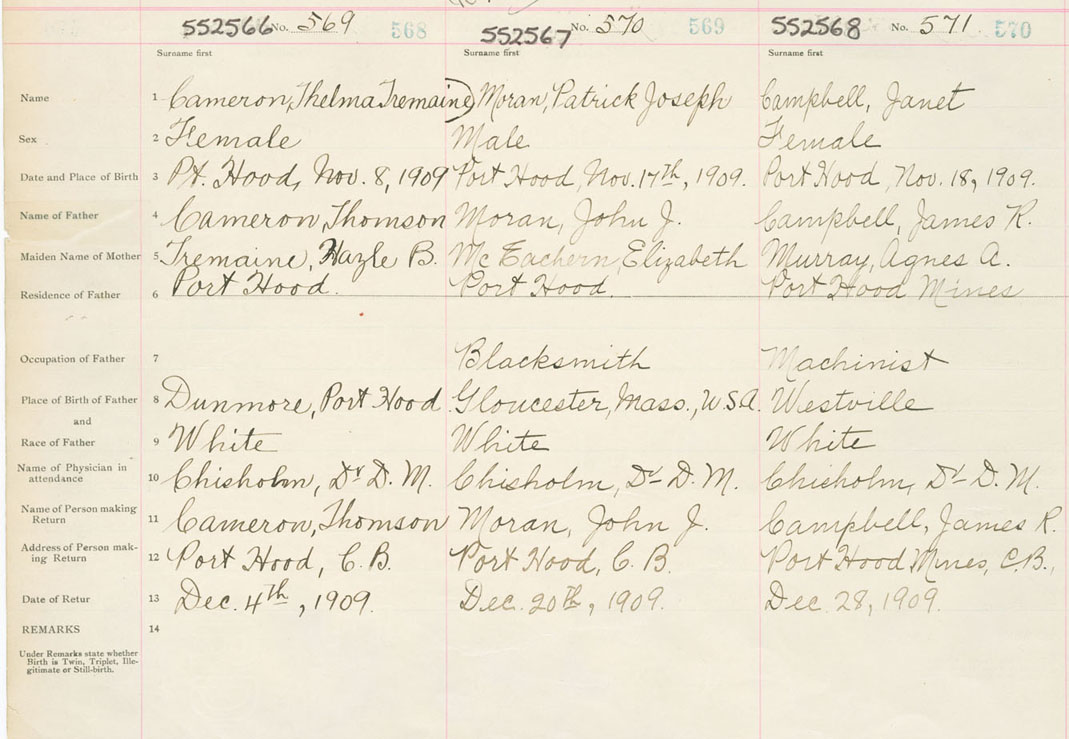 552566 No. 569 568 552567 No. 570 569 552568 No. 571 570
Surname first Surname first Surname first
Name 1 Cameron, Thelma Tremaine) Moran, Patrick Joseph Campbell, Janet
Sex 2 Female Male Female
Date and Place of Birth 3 Pt. Hood, Nov. 8, 1909 Port Hood, Nov. 17th, 1909. Port Hood, Nov. 18, 1909.
Name of Father 4 Cameron, Thomson Moran, John J. Campbell, James R.
Maiden Name of Mother 5 Tremaine, Hazle B. Mc Eachern, Elizabeth Murray, Agnes A.
Residence of Father 6 Port Hood. Port Hood. Port Hood Mines
Occupation of Father 7 Blacksmith Machinist
Place of Birth of Father 8 Dunmore, Port Hood Gloucester, Mass., U.S.A. Westville
and
Race of Father 9 White White White
Name of Physician in
attendance 10 Chisholm, Dr D. M. Chisholm, Dr D. M. Chisholm, Dr D. M.
Name of Person making
Return 11 Cameron, Thomson Moran, John J. Campbell, James R.
Address of Person mak-
ing Return 12 Port Hood, C. B. Port Hood, C. B. Port Hood Mines, C.B.,
Date of Retur 13 Dec. 4th, 1909. Dec. 20th, 1909. Dec. 28, 1909.
REMARKS 14
Under Remarks state whether
Birth is Twin, Triplet, Ille-
gitimate or Still-birth.